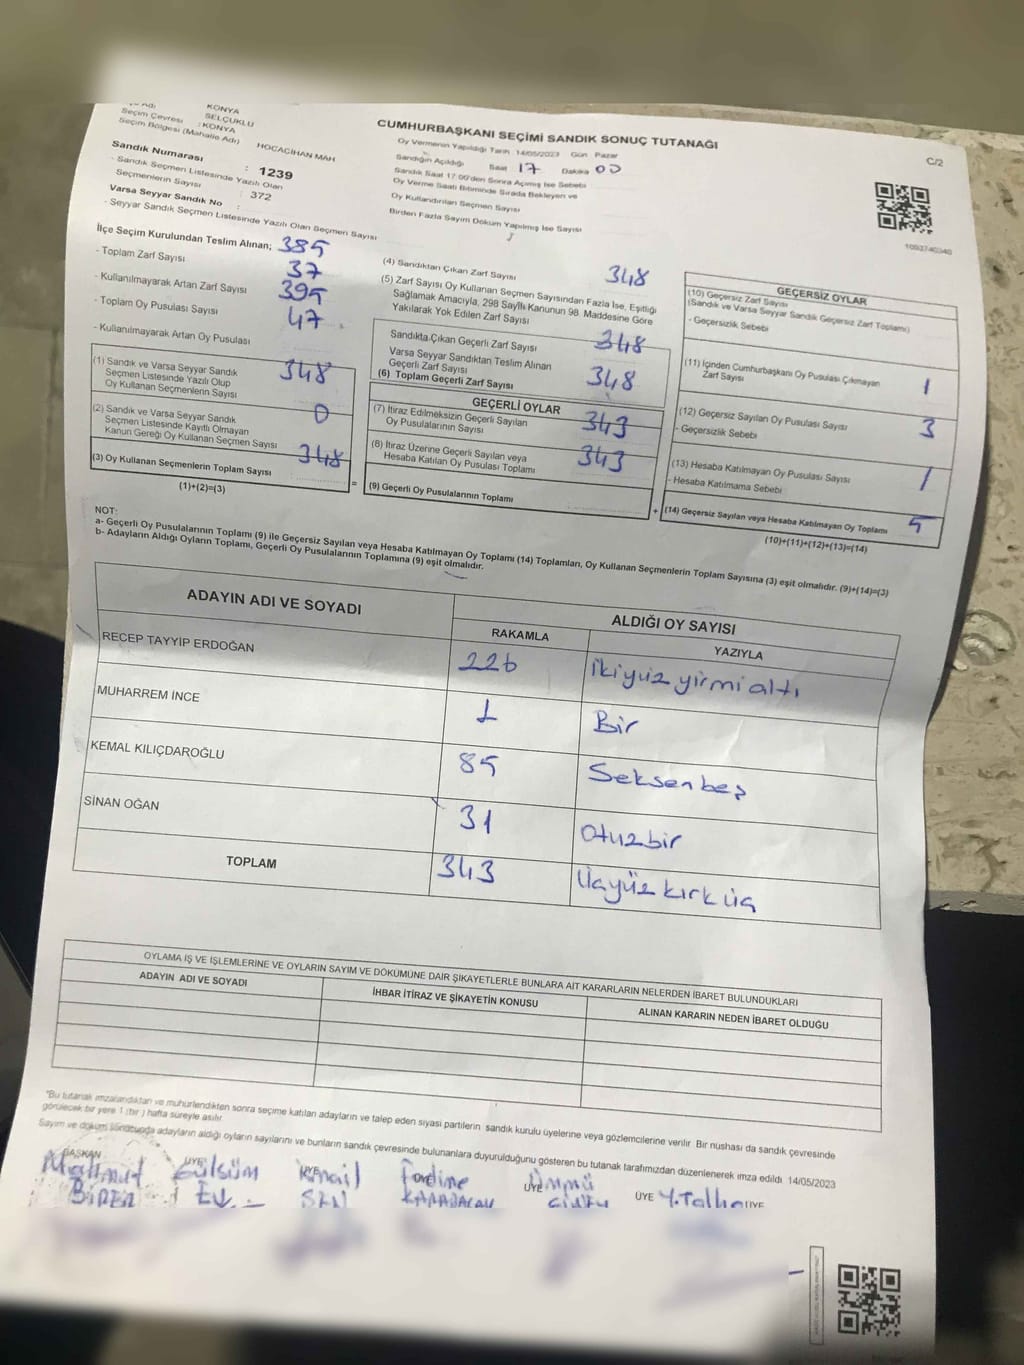 KONYA
SELÇUKLU
Seçim Çevresi : KONYA
Seçim Bölgesi (Mahalle Adı) HOCACİHAN MAH
Sandık Numarası : 1239
- Sandık Seçmen Listesinde Yazılı Olan
Seçmenlerin Sayısı : 372
Varsa Seyyar Sandık No :
- Seyyar Sandık Seçmen Listesinde Yazılı Olan Seçmen Sayısı
CUMHURBAŞKANI SEÇİMİ SANDIK SONUÇ TUTANAĞI
C/2
Oy Vermenin Yapıldığı Tarih 14/05/2023 Gün Pazar
Sandığın Açıldığı Saat 17 Dakika 00
Sandık Saat 17:00'den Sonra Açmış İse Sebebi
Oy Verme Saati Bitiminde Sırada Bekleyen ve
Oy Kullandırılan Seçmen Sayısı
Birden Fazla Sayım Döküm Yapılmış İse Sayısı
İlçe Seçim Kurulundan Teslim Alınan; 385
- Toplam Zarf Sayısı 37
- Kullanılmayarak Artan Zarf Sayısı 395
- Toplam Oy Pusulası Sayısı 47
- Kullanılmayarak Artan Oy Pusulası
(1) Sandık ve Varsa Seyyar Sandık
Seçmen Listesinde Yazılı Olup
Oy Kullanan Seçmenlerin Sayısı 348
(2) Sandık ve Varsa Seyyar Sandık
Seçmen Listesinde Kayıtlı Olmayan
Kanun Gereği Oy Kullanan Seçmen Sayısı 0
(3) Oy Kullanan Seçmenlerin Toplam Sayısı 348
(1)+(2)=(3)
=
(4) Sandıktan Çıkan Zarf Sayısı 348
(5) Zarf Sayısı Oy Kullanan Seçmen Sayısından Fazla İse, Eşitliği
Sağlamak Amacıyla, 298 Sayılı Kanunun 98. Maddesine Göre
Yakılarak Yok Edilen Zarf Sayısı
Sandıkta Çıkan Geçerli Zarf Sayısı 348
Varsa Seyyar Sandıktan Teslim Alınan
Geçerli Zarf Sayısı
(6) Toplam Geçerli Zarf Sayısı 348
GEÇERLİ OYLAR
(7) İtiraz Edilmeksizin Geçerli Sayılan
Oy Pusulalarının Sayısı 343
(8) İtiraz Üzerine Geçerli Sayılan veya
Hesaba Katılan Oy Pusulası Toplamı 343
(9) Geçerli Oy Pusulalarının Toplamı
+
GEÇERSİZ OYLAR
(10) Geçersiz Zarf Sayısı
(Sandık ve Varsa Seyyar Sandık Geçersiz Zarf Toplamı)
- Geçersizlik Sebebi
(11) İçinden Cumhurbaşkanı Oy Pusulası Çıkmayan
Zarf Sayısı 1
(12) Geçersiz Sayılan Oy Pusulası Sayısı 3
- Geçersizlik Sebebi
(13) Hesaba Katılmayan Oy Pusulası Sayısı 1
- Hesaba Katılmama Sebebi
(14) Geçersiz Sayılan veya Hesaba Katılmayan Oy Toplamı 5
(10)+(11)+(12)+(13)=(14)
NOT:
a- Geçerli Oy Pusulalarının Toplamı (9) ile Geçersiz Sayılan veya Hesaba Katılmayan Oy Toplamı (14) Toplamları, Oy Kullanan Seçmenlerin Toplam Sayısına (3) eşit olmalıdır. (9)+(14)=(3)
b- Adayların Aldığı Oyların Toplamı, Geçerli Oy Pusulalarının Toplamına (9) eşit olmalıdır.
ADAYIN ADI VE SOYADI ALDIĞI OY SAYISI
RAKAMLA YAZIYLA
RECEP TAYYİP ERDOĞAN 226 ikiyüz yirmi altı
MUHARREM İNCE 1 Bir
KEMAL KILIÇDAROĞLU 85 Seksen beş
SİNAN OĞAN 31 Otuzbir
TOPLAM 343 Üçyüz kırk üç
OYLAMA İŞ VE İŞLEMLERİNE VE OYLARIN SAYIM VE DÖKÜMÜNE DAİR ŞİKAYETLERLE BUNLARA AİT KARARLARIN NELERDEN İBARET BULUNDUKLARI
ADAYIN ADI VE SOYADI İHBAR İTİRAZ VE ŞİKAYETİN KONUSU ALINAN KARARIN NEDEN İBARET OLDUĞU
"Bu tutanak imzalandıktan ve mühürlendikten sonra seçime katılan adayların ve talep eden siyasi partilerin sandık kurulu üyelerine veya gözlemcilerine verilir. Bir nüshası da sandık çevresinde
görülecek bir yere 1 (bir) hafta süreyle asılır.
Sayım ve döküm sonucunda adayların aldığı oyların sayılarını ve bunların sandık çevresinde bulunanlara duyurulduğunu gösteren bu tutanak tarafımızdan düzenlenerek imza edildi. 14/05/2023
BAŞKAN ÜYE ÜYE ÜYE ÜYE ÜYE ÜYE
Mahmut Gülsüm İsmail Ümmü Y.Talha
ŞEN